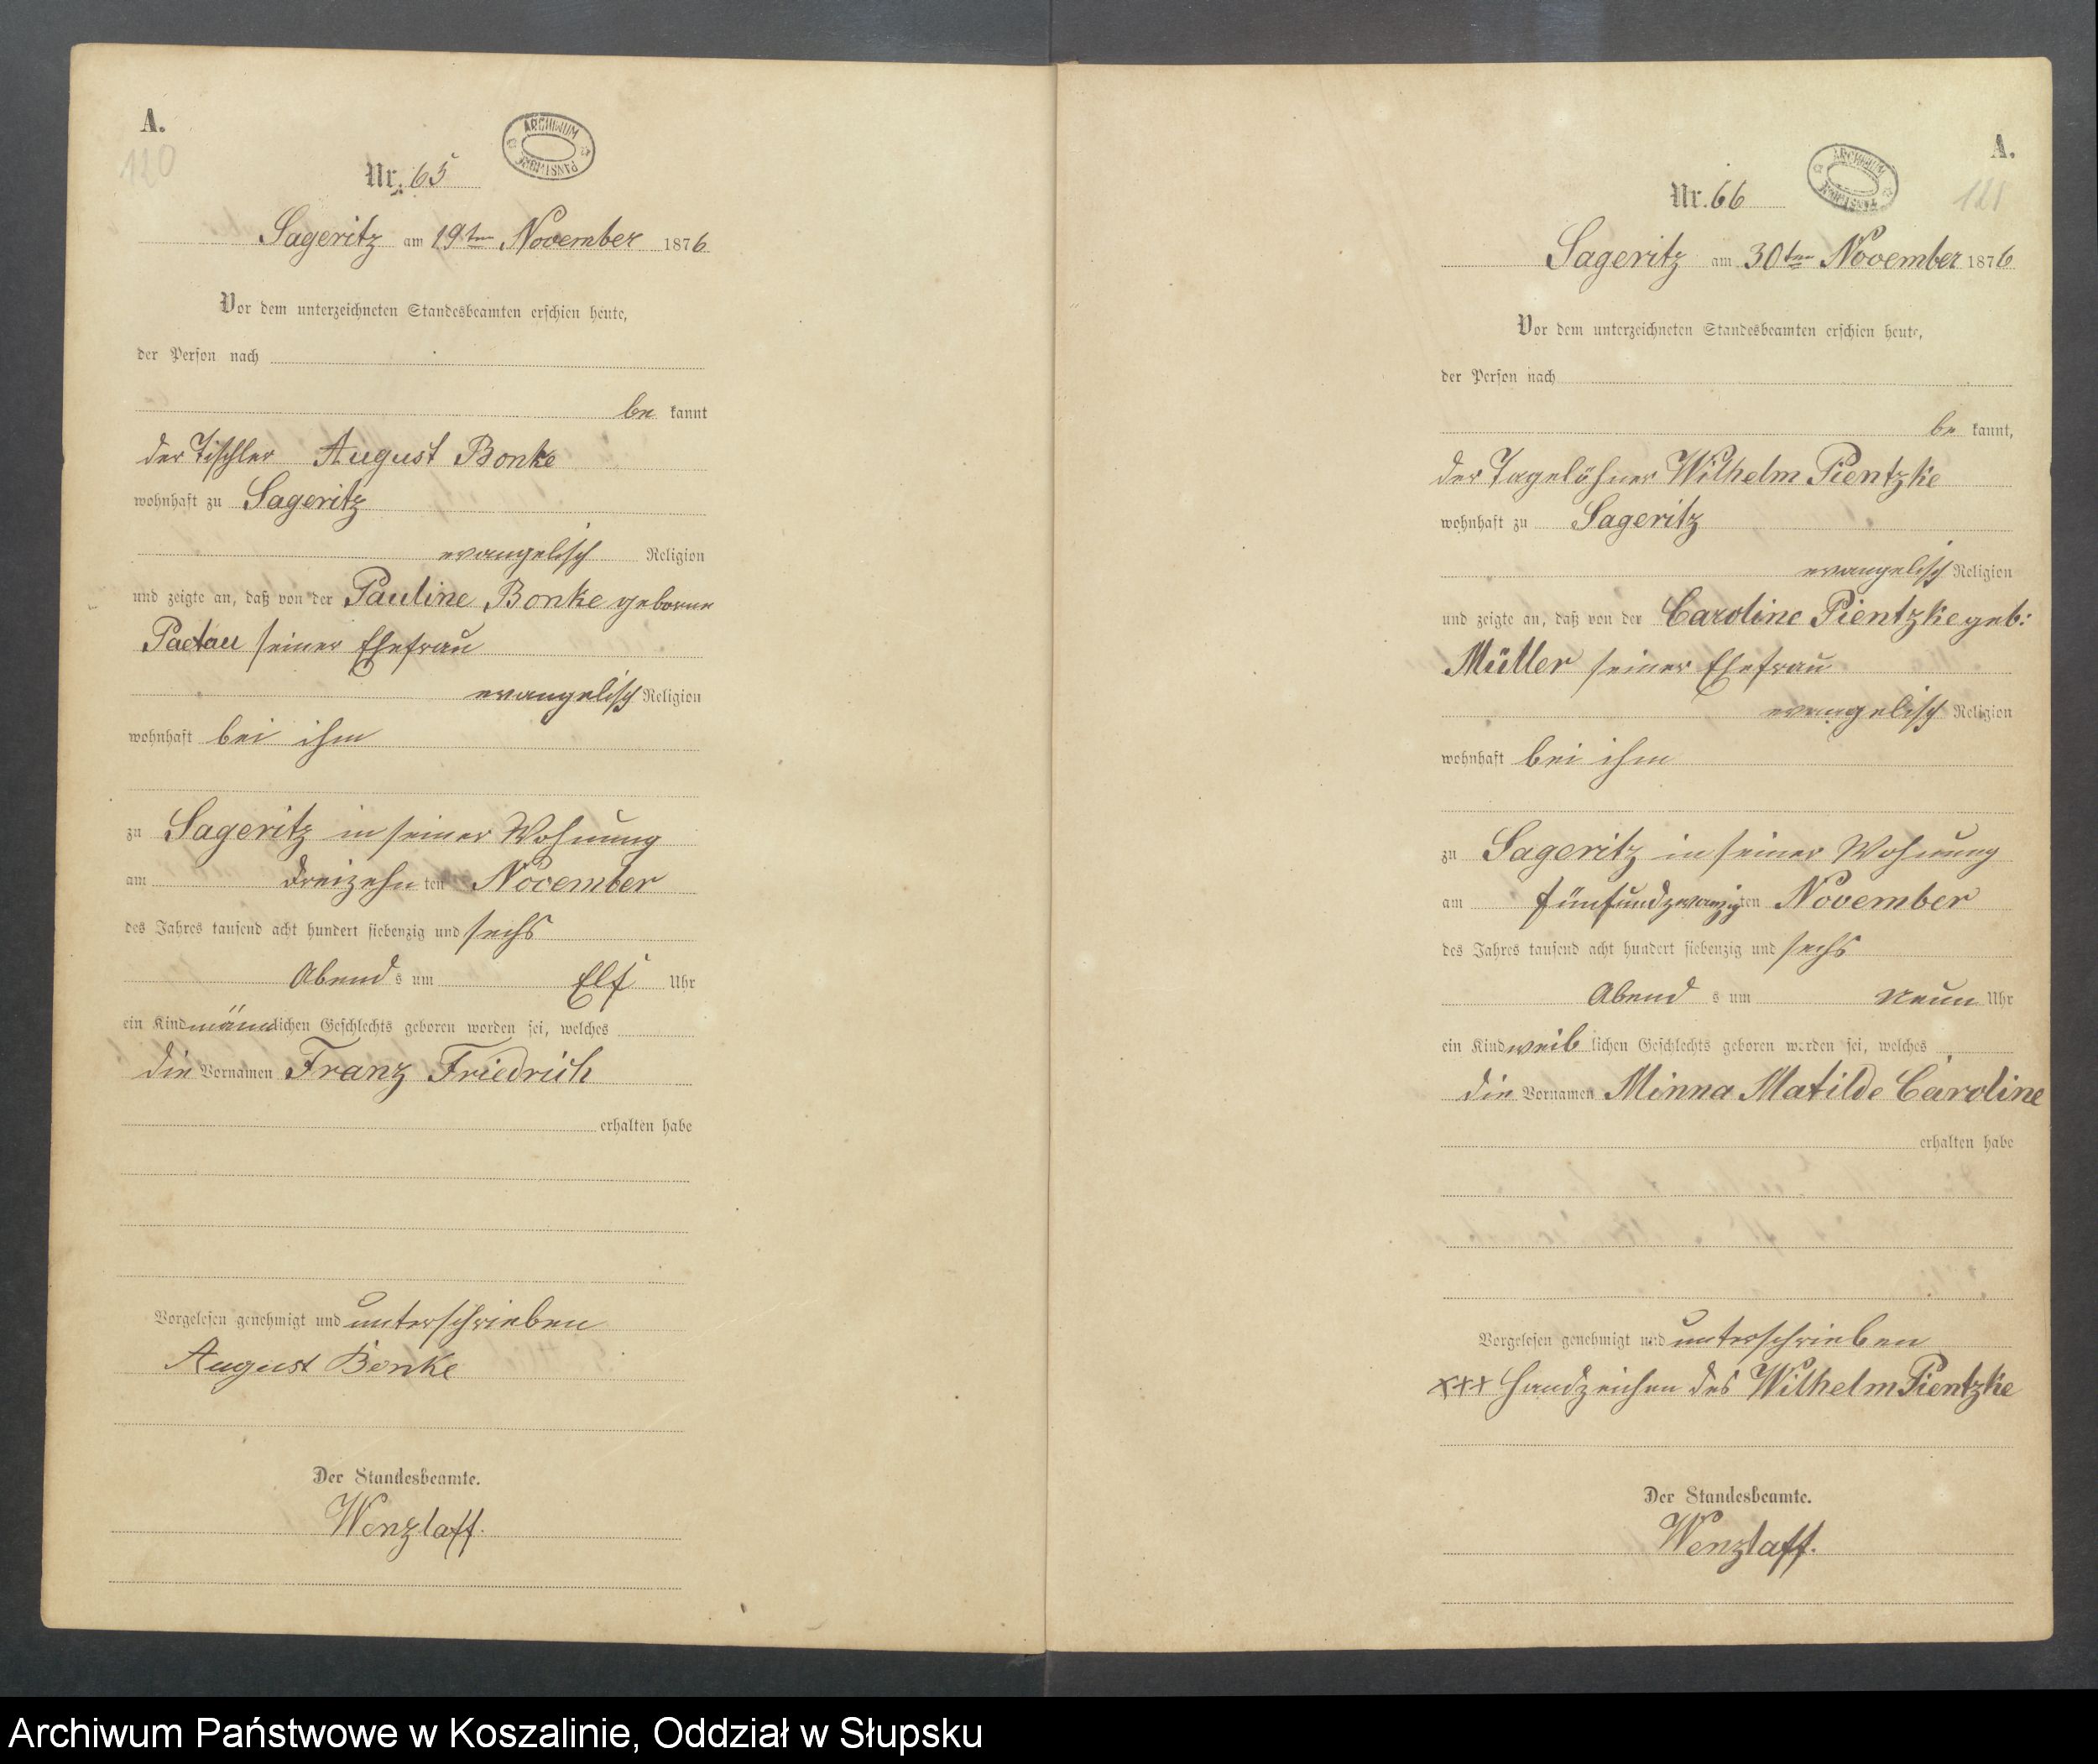 A.
120
ARCHIWUM PAŃSTWOWE
Nr. 65
Sageritz am 19ten November 1876
Vor dem unterzeichneten Standesbeamten erschien heute,
der Person nach
be kannt
der Tischler August Bonke
wohnhaft zu Sageritz
evangelisch Religion
und zeigte an, daß von der Pauline Bonke geborne
Paetau seiner Ehefrau
evangelisch Religion
wohnhaft bei ihm
zu Sageritz in seiner Wohnung
am dreizehn ten November
des Jahres tausend acht hundert siebenzig und sechs
Abend s um Elf Uhr
ein Kind männlichen Geschlechts geboren worden sei, welches
die Vornamen Franz Friedrich
erhalten habe
Vorgelesen genehmigt und unterschrieben
August Bonke
Der Standesbeamte.
Wenzlaff.
A.
121
ARCHIWUM PAŃSTWOWE
Nr. 66
Sageritz am 30ten November 1876
Vor dem unterzeichneten Standesbeamten erschien heute,
der Person nach
be kannt,
der Tagelöhner Wilhelm Pientzke
wohnhaft zu Sageritz
evangelisch Religion
und zeigte an, daß von der Caroline Pientzke geb:
Müller seiner Ehefrau
evangelisch Religion
wohnhaft bei ihm
zu Sageritz in seiner Wohnung
am fünfundzwanzigten November
des Jahres tausend acht hundert siebenzig und sechs
Abend s um neun Uhr
ein Kind weib lichen Geschlechts geboren worden sei, welches
die Vornamen Minna Matilde Caroline
erhalten habe
Vorgelesen genehmigt und unterschrieben
xxx Handzeichen des Wilhelm Pientzke
Der Standesbeamte.
Wenzlaff.
Archiwum Państwowe w Koszalinie, Oddział w Słupsku